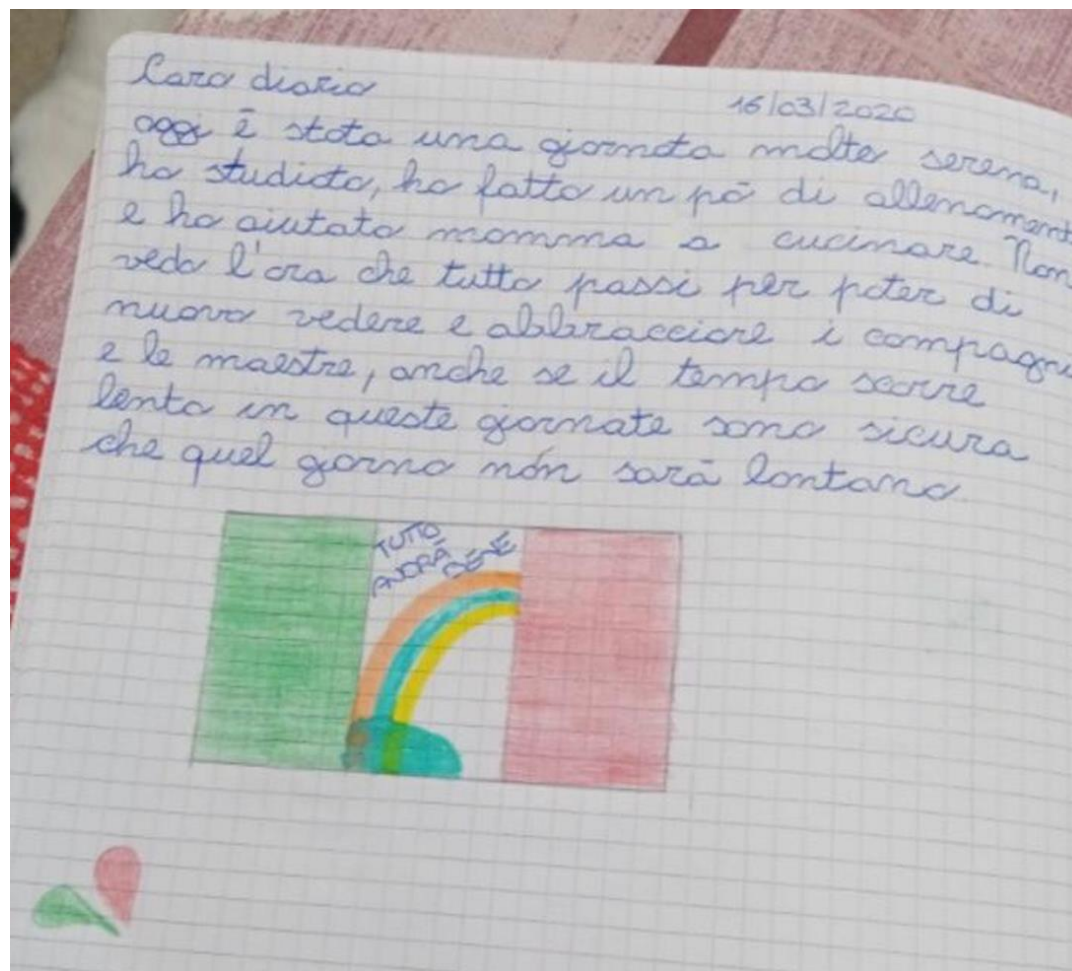 Caro diario
16/03/2020
oggi è stata una giornata molto serena,
ho studiato, ho fatto un pō di allenament
e ho aiutato mamma a cucinare. Non
vedo l'ora che tutto passi per poter di
nuovo vedere e abbracciare i compagni
e le maestre, anche se il tempo scorre
lento in queste giornate sono sicura
che quel giorno nón sarà lontano
TUTTO
ANDRÀ BENE